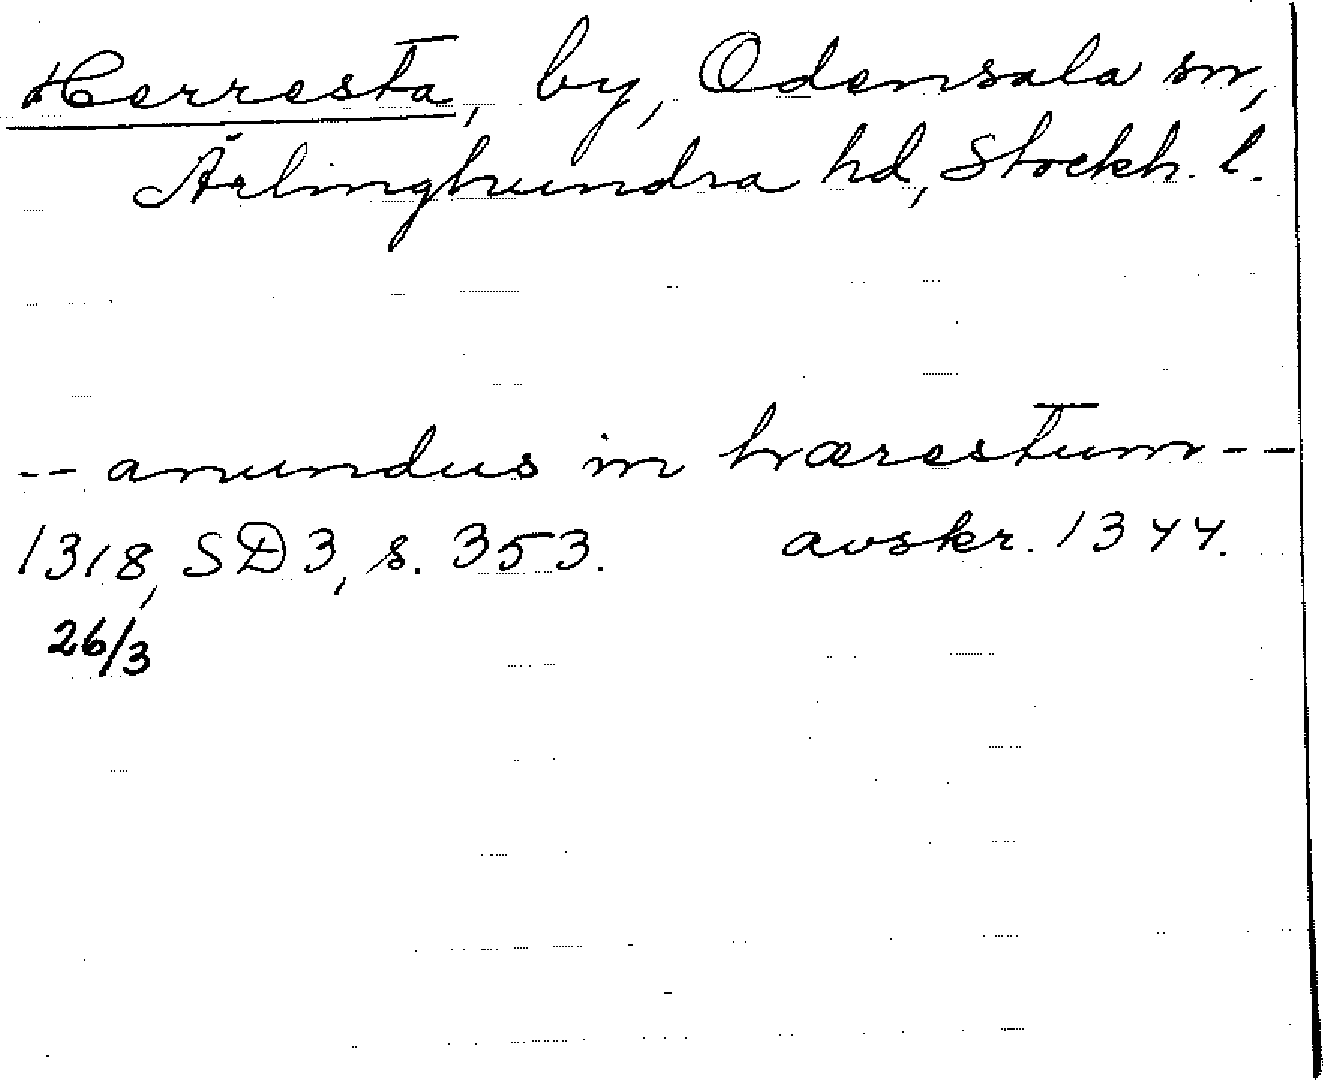 Herresta, by, Odensala sn,
Ärlinghundra hd, Stockh. l.
-- anundus in hærestum --
1318, SD 3, s. 353. avskr. 1344.
26/3